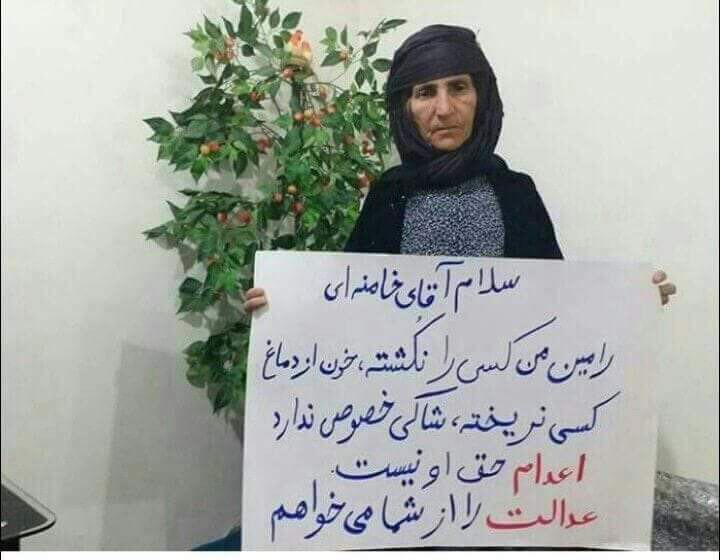 سلام آقای خامنه ای
رامین من کسی را نکُشته، خون از دماغ
کسی نریخته، شاکی خصوص ندارد
اعدام حق او نیست.
عدالت را از شما می خواهم